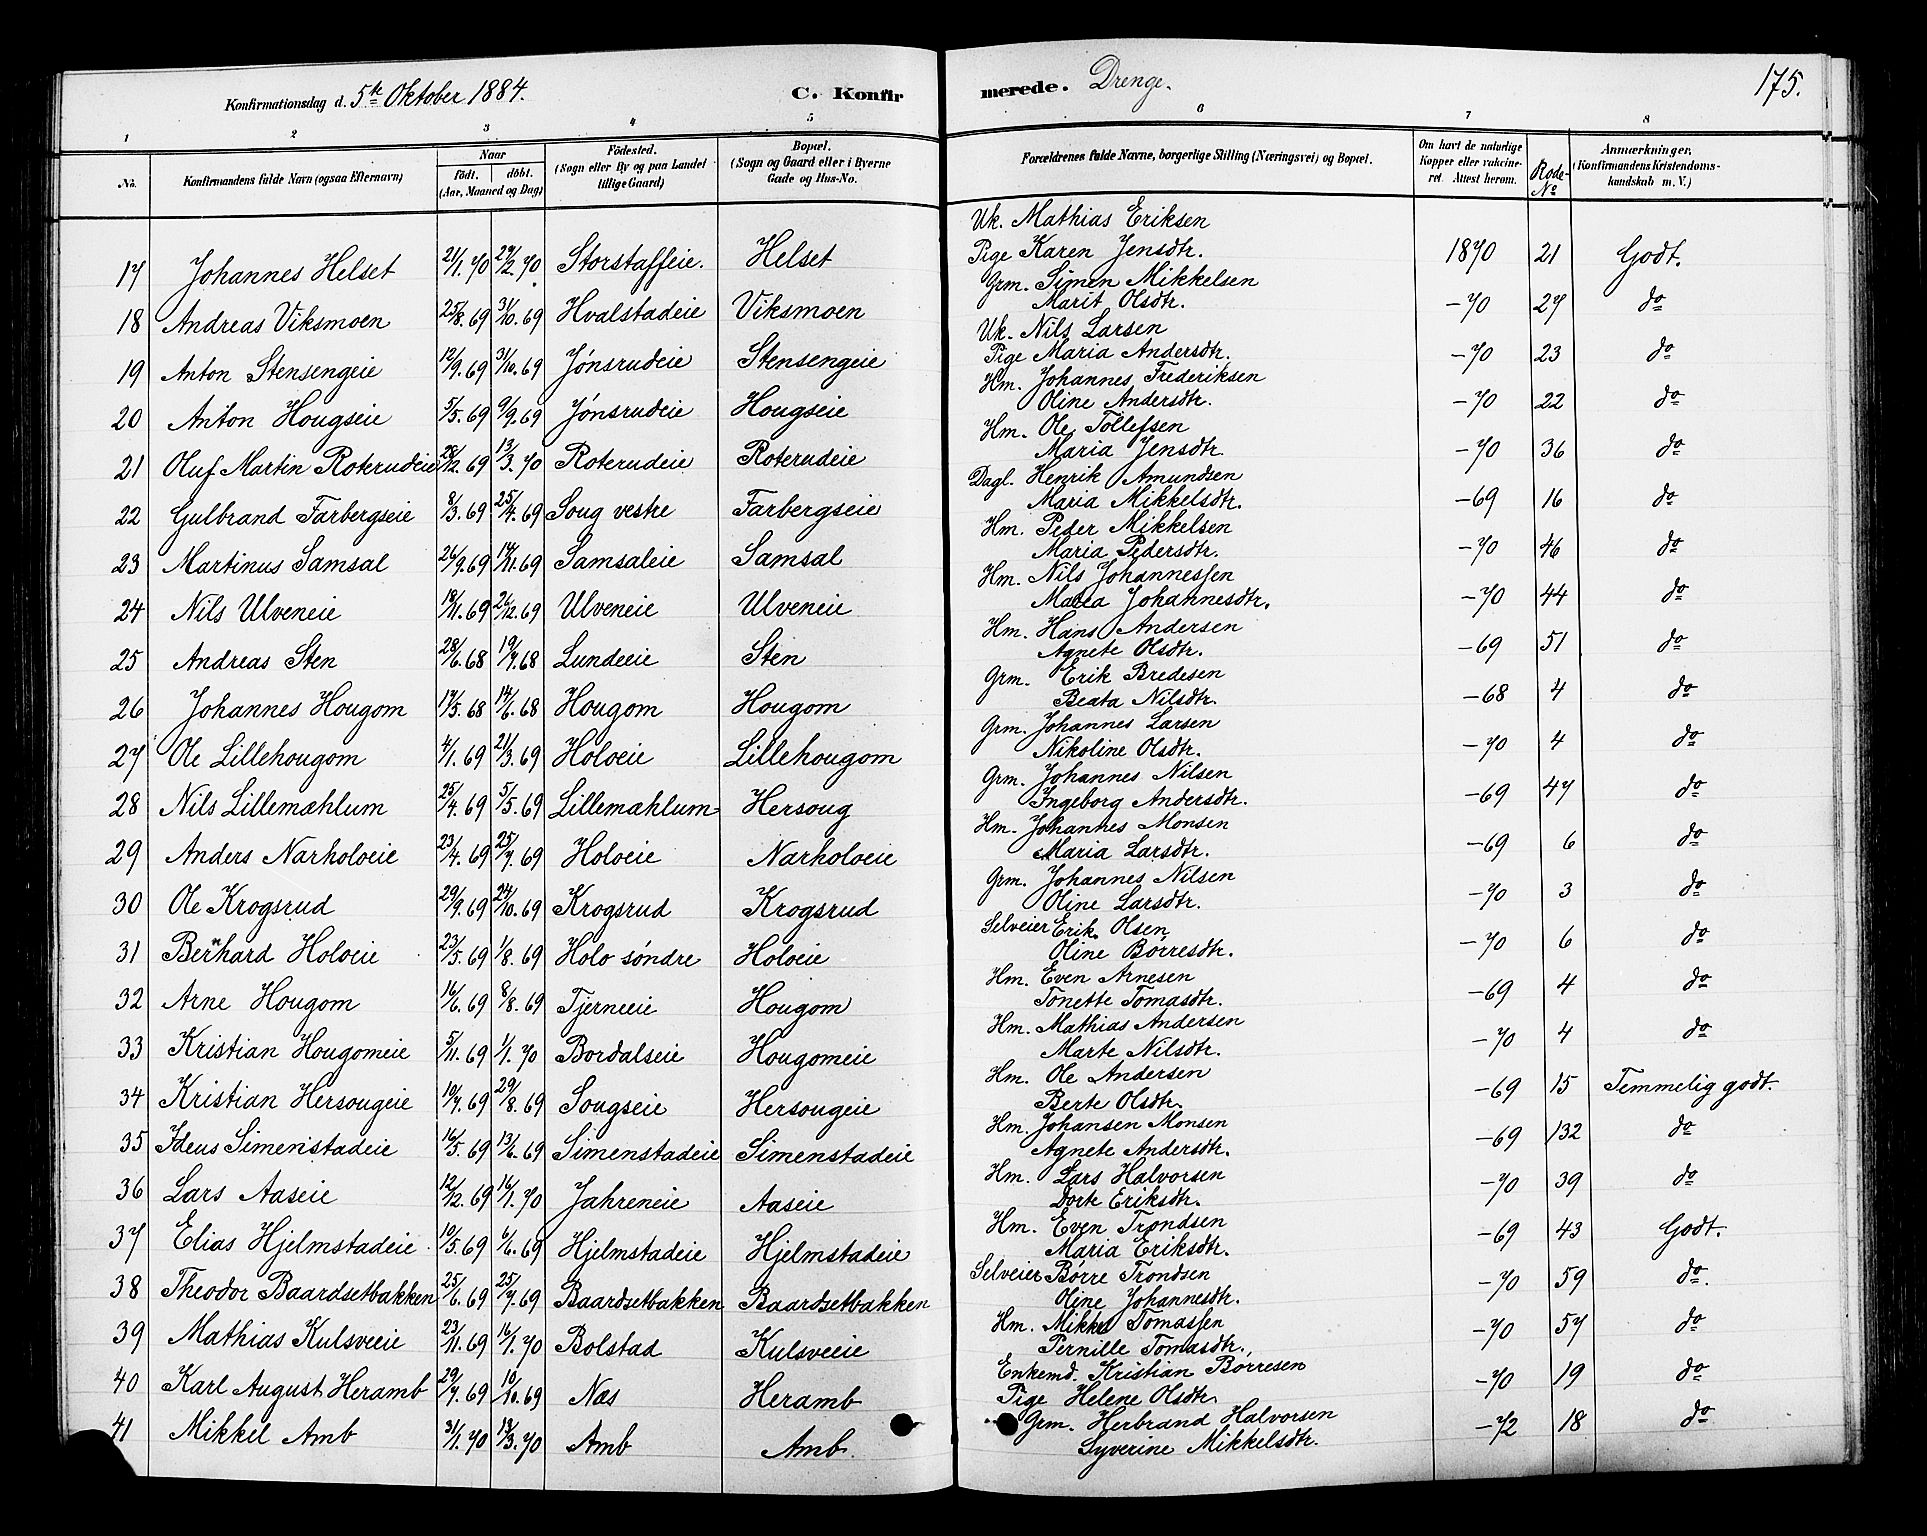 Konfirmationsdag d. 5te Oktober 1884. C. Konfirmerede. Drenge. 175.
1 2 3 4 5 6 7 8
No. Konfirmandens fulde Navn (ogsaa Efternavn) Naar Født. døbt. (Aar, Maaned og Dag) Fødested. (Sogn eller By og paa Landet tillige Gaard) Bopæl. (Sogn og Gaard eller i Byerne Gade og Hus-No. Forældrenes fulde Navne, borgerlige Stilling (Næringsvei) og Bopæl. Om havt de naturlige Kopper eller vakcineret. Attest herom. Rode-No Anmærkninger, (Konfirmandens Kristendomskundskab m. V.)
17 Johannes Helset 21/1. 70 27/2. 70 Storstaffeie. Helset Uk. Mathias Eriksen Pige Karen Jensdtr. 1870 21 Godt.
18 Andreas Viksmoen 25/8. 69 31/10. 69 Hvalstadeie Viksmoen Grm. Simen Mikkelsen Marit Olsdtr. -70 27 do
19 Anton Stensengeie 12/9. 69 31/10. 69 Jónsrudeie Stensengeie Uk. Nils Larsen Pige Maria Andersdtr. -70 23 do
20 Anton Hougseie 5/5. 69 9/9. 69 Jónsrudeie Hougseie Hm. Johannes Frederiksen Oline Andersdtr. -70 22 do
21 Oluf Martin Roterudeie 28/12. 69 13/3. 70 Roterudeie Roterudeie Hm. Ole Tollefsen Maria Jensdtr. -70 36 do
22 Gulbrand Farbergseie 8/3. 69 25/4. 69 Soug vestre Farbergseie Dagl. Henrik Amundsen Maria Mikkelsdtr. -69 16 do
23 Martinus Samsal 26/9. 69 14/11. 69 Samsaleie Samsal Hm. Peder Mikkelsen Maria Pedersdtr. -70 46 do
24 Nils Ulveneie 18/11. 69 26/12. 69 Ulveneie Ulveneie Hm. Nils Johannessen Maria Johannesdtr. -70 44 do
25 Andreas Sten 28/6. 68 19/7. 68 Lundeeie Sten Hm. Hans Andersen Agnete Olsdtr. -69 51 do
26 Johannes Hougom 17/5. 68 14/6. 68 Hougom Hougom Grm. Erik Bredesen Beata Nilsdtr. -68 4 do
27 Ole Lillehougom 4/1. 69 21/3. 69 Holoeie Lillehougom Grm. Johannes Larsen Nikoline Olsdtr. -70 4 do
28 Nils Lillemæhlum 25/4. 69 5/5. 69 Lillemæhlum Hersoug Grm. Johannes Nilsen Ingeborg Andersdtr. -69 47 do
29 Anders Narholoeie 23/4. 69 25/7. 69 Holoeie Narholoeie Hm. Johannes Monsen Maria Larsdtr. -69 6 do
30 Ole Krogsrud 29/9. 69 24/10. 69 Krogsrud Krogsrud Grm. Johannes Nilsen Oline Larsdtr. -70 3 do
31 Bernhard Holoeie 23/5. 69 1/8. 69 Holo søndre Holoeie Selveier Erik Olsen Oline Børresdtr. -70 6 do
32 Arne Hougom 16/6. 69 8/8. 69 Tjerneeie Hougom Hm. Even Arnesen Tonette Tomasdtr. -69 4 do
33 Kristian Hougomeie 5/11. 69 1/1. 70 Bordalseie Hougomeie Hm. Mathias Andersen Marte Nilsdtr. -70 4 do
34 Kristian Hersougeie 19/7. 69 29/8. 69 Sougseie Hersougeie Hm. Ole Andersen Berte Olsdtr. -69 15 Temmelig godt.
35 Ideus Simenstadeie 16/5. 69 13/6. 69 Simenstadeie Simenstadeie Hm. Johansen Monsen Agnete Andersdtr. -69 132 do
36 Lars Aaseie 12/12. 69 16/1. 70 Jahreneie Aaseie Hm. Lars Halvorsen Dorte Eriksdtr. -70 39 do
37 Elias Hjelmstadeie 10/5. 69 6/6. 69 Hjelmstadeie Hjelmstadeie Hm. Even Trondsen Maria Eriksdtr. -69 43 Godt.
38 Theodor Baardsetbakken 25/6. 69 25/7. 69 Baardsetbakken Baardsetbakken Selveier Børre Trondsen Oline Johannesdtr. -70 59 do.
39 Mathias Kulsveeie 23/11. 69 16/1. 70 Bolstad Kulsveeie Hm. Mikkel Tomassen Pernille Tomasdtr. -70 57 do
40 Karl August Heramb 29/7. 69 10/10. 69 Næs Heramb Enkemd. Kristian Børresen Pige Helene Olsdtr. -70 19 do
41 Mikkel Amb 31/1. 70 13/3. 70 Amb Amb. Grm. Herbrand Halvorsen Syverine Mikkelsdtr. -72 18 do